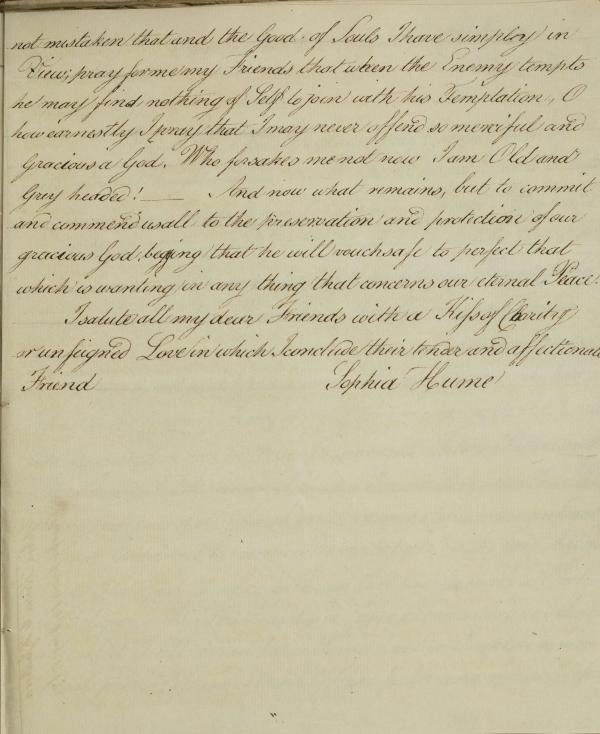 not mistaken that and the Good of Souls I have simploy in
View; pray for me my Friends that when the Enemy tempts
he may find nothing of Self to join with his Temptation, O
how earnestly I pray that I may never offend so merciful and
Gracious a God, Who forsakes me not now I am Old and
Grey headed! — And now what remains, but to commit
and commend us all to the preservation and protection of our
gracious God, beging that he will vouchsafe to perfect that
which is wanting in any thing that concerns our eternal Peace.
I salute all my dear Friends with a Kiss of Charity
or unfeigned Love in which I conclude their tender and affectionate
Friend Sophia Hume